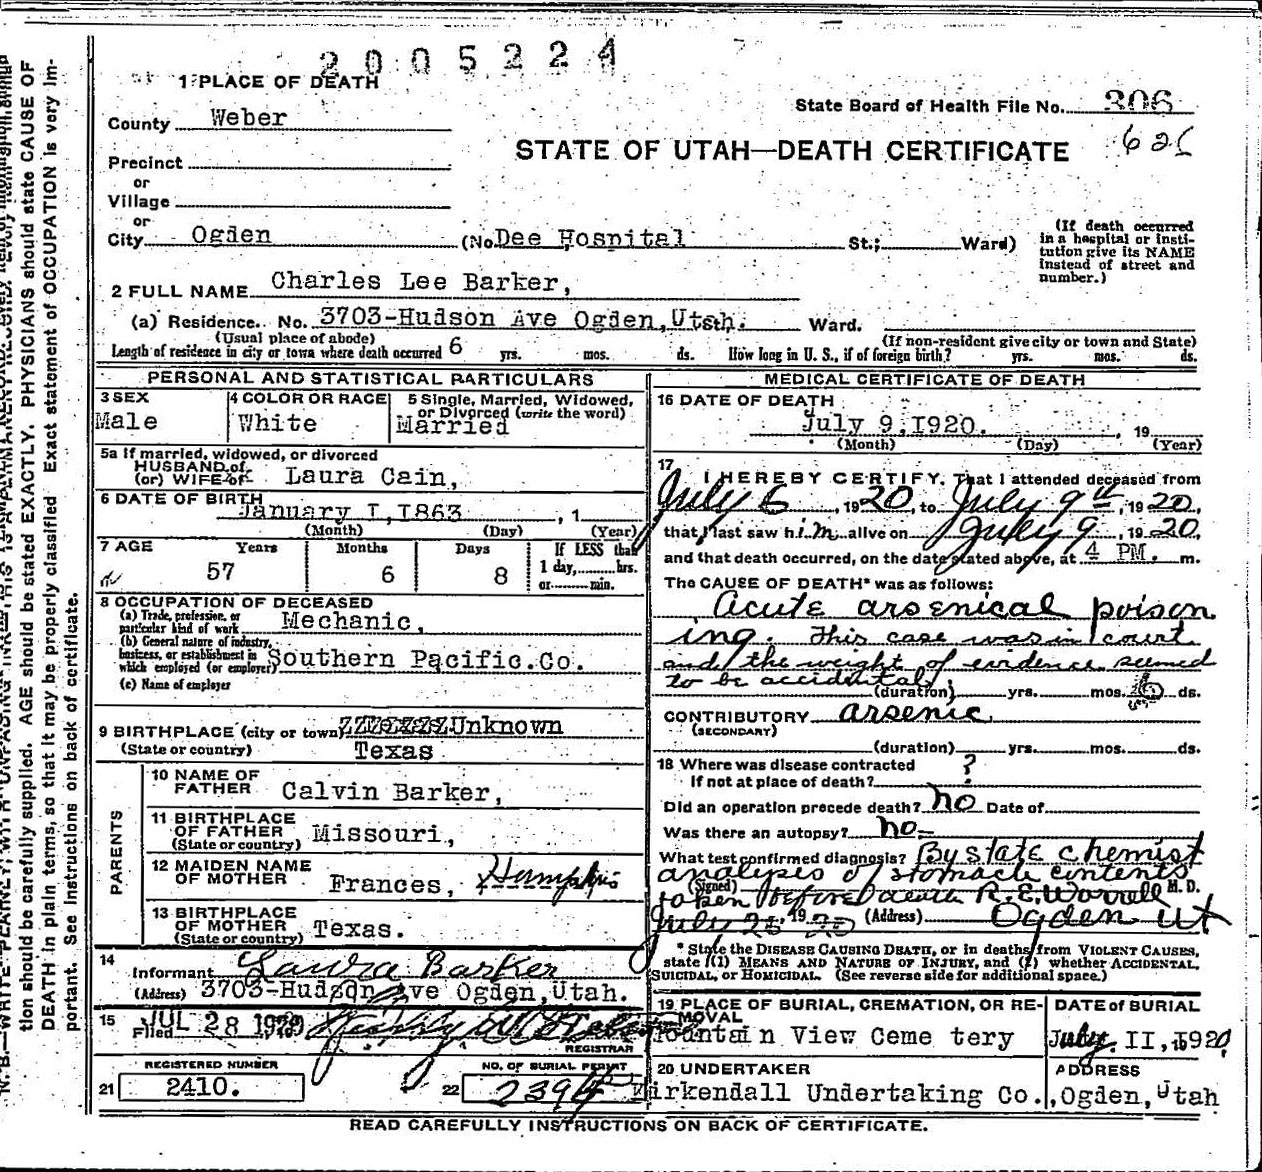 2005224
1 PLACE OF DEATH
State Board of Health File No. 306
County Weber
STATE OF UTAH—DEATH CERTIFICATE
Precinct
or
Village
or
City Ogden (No. Dee Hospital St.; Ward)
(If death occurred in a hospital or institution give its NAME instead of street and number.)
2 FULL NAME Charles Lee Barker,
(a) Residence. No. 3703-Hudson Ave Ogden, Utah. Ward.
(Usual place of abode) (If non-resident give city or town and State)
Length of residence in city or town where death occurred 6 yrs. mos. ds. How long in U. S., if of foreign birth? yrs. mos. ds.
PERSONAL AND STATISTICAL PARTICULARS
3 SEX
Male
4 COLOR OR RACE
White
5 Single, Married, Widowed, or Divorced (write the word)
Married
5a If married, widowed, or divorced
HUSBAND of
(or) WIFE of Laura Cain,
6 DATE OF BIRTH
January I, I863 , 1
(Month) (Day) (Year)
7 AGE Years Months Days If LESS than
57 6 8 1 day, hrs.
or min.
8 OCCUPATION OF DECEASED
(a) Trade, profession, or particular kind of work Mechanic,
(b) General nature of industry, business, or establishment in which employed (or employer) Southern Pacific.Co.
(c) Name of employer
9 BIRTHPLACE (city or town) Unknown
(State or country) Texas
PARENTS
10 NAME OF FATHER Calvin Barker,
11 BIRTHPLACE OF FATHER (State or country) Missouri,
12 MAIDEN NAME OF MOTHER Frances,
13 BIRTHPLACE OF MOTHER (State or country) Texas.
14 Informant Laura Barker
(Address) 3703-Hudson Ave Ogden, Utah.
15 Filed JUL 28 1920
REGISTRAR
REGISTERED NUMBER
21 2410.
NO. OF BURIAL PERMIT
22 2394
MEDICAL CERTIFICATE OF DEATH
16 DATE OF DEATH
July 9, I920. , 19
(Month) (Day) (Year)
17 I HEREBY CERTIFY, That I attended deceased from
July 6, 1920, to July 9th, 1920,
that I last saw him alive on July 9, 1920,
and that death occurred, on the date stated above, at 4 PM. m.
The CAUSE OF DEATH* was as follows:
Acute arsenical poison
ing. This case was in court
and the weight of evidence seemed
to be accidental
(duration) yrs. mos. ds.
CONTRIBUTORY arsenic
(SECONDARY)
(duration) yrs. mos. ds.
18 Where was disease contracted
If not at place of death? ?
Did an operation precede death? no Date of
Was there an autopsy? no
What test confirmed diagnosis? By state chemist
analysis of stomach contents
taken before death
(Signed) R. E. Worrell M. D.
(Address) Ogden Ut
* State the DISEASE CAUSING DEATH, or in deaths from VIOLENT CAUSES, state (1) MEANS AND NATURE OF INJURY, and (2) whether ACCIDENTAL, SUICIDAL, or HOMICIDAL. (See reverse side for additional space.)
19 PLACE OF BURIAL, CREMATION, OR REMOVAL
Mountain View Cemetery
DATE of BURIAL
July II, 1920
20 UNDERTAKER
Kirkendall Undertaking Co.
ADDRESS
,Ogden, Utah
READ CAREFULLY INSTRUCTIONS ON BACK OF CERTIFICATE.
tion should be carefully supplied. AGE should be stated EXACTLY. PHYSICIANS should state CAUSE OF
DEATH in plain terms, so that it may be properly classified. Exact statement of OCCUPATION is very im-
portant. See instructions on back of certificate.